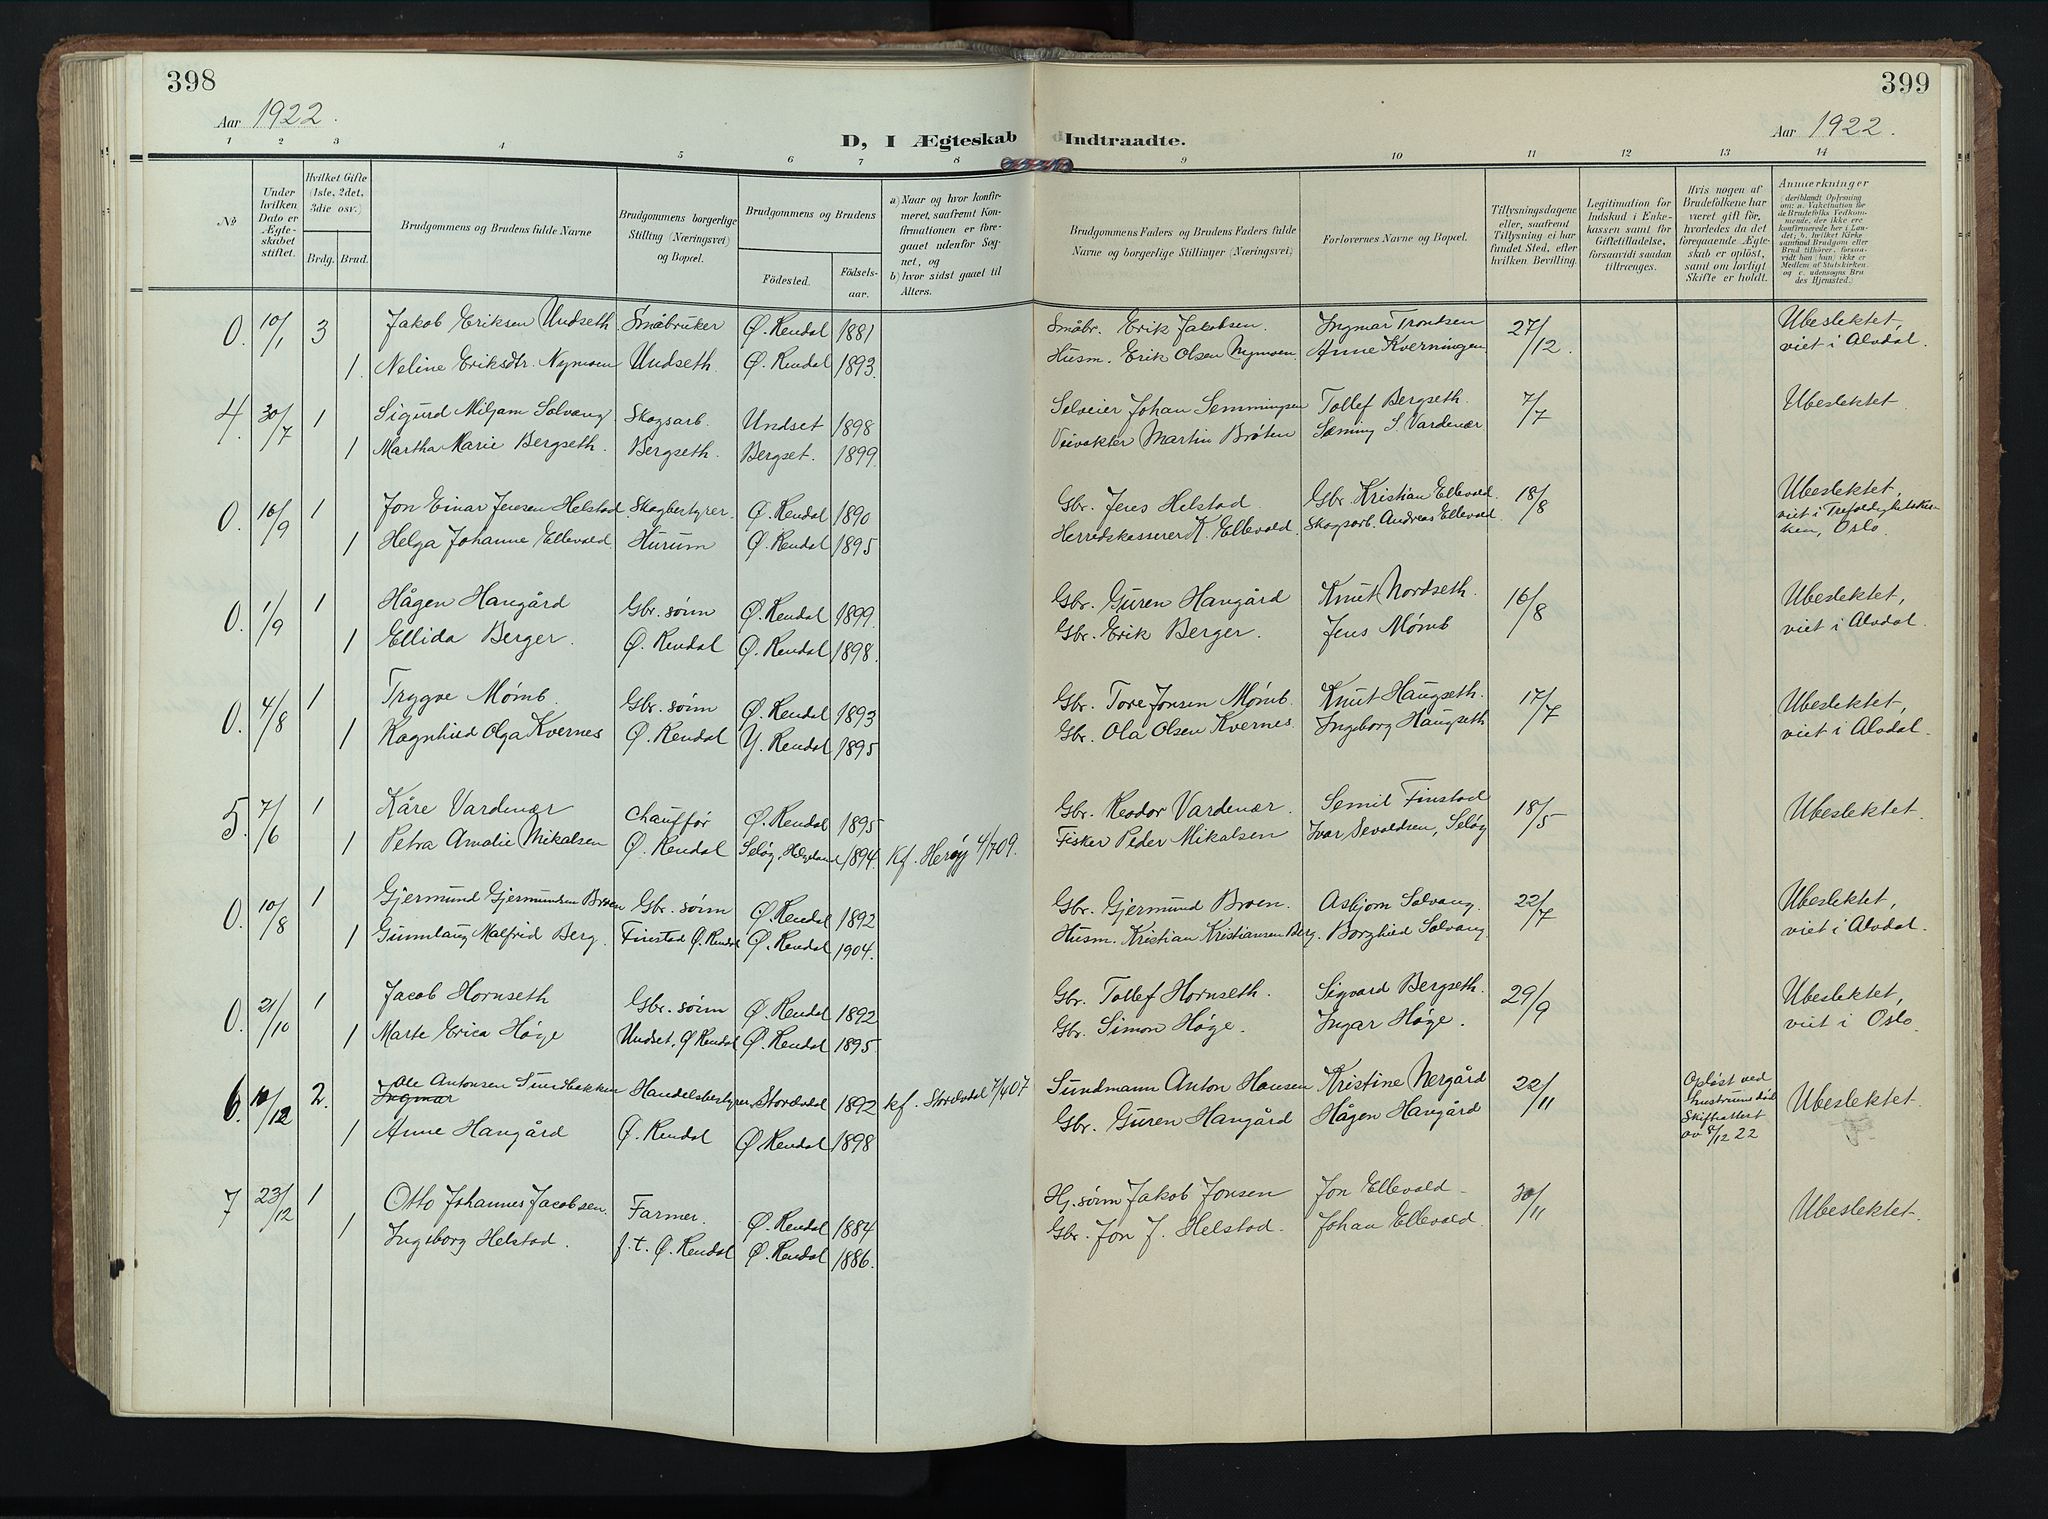 398
Aar 1922.
D, I Ægteskab
1 2 3 4 5 6 7 8
№
Under hvilken Dato er Ægteskabet stiftet.
Hvilket Gifte (1ste, 2det, 3die osv.)
Brdg. Brud.
Brudgommens og Brudens fulde Navne
Brudgommens borgerlige Stilling (Næringsvei) og Bopæl.
Brudgommens og Brudens
Fødested.
Fødselsaar.
a) Naar og hvor konfirmeret, saafremt Konfirmationen er foregaaet udenfor Sognet, og
b) hvor sidst gaaet til Alters.
0. 10/1 3 Jakob Eriksen Undseth Småbruker Ø. Rendal 1881
1. Neline Eriksdtr. Nymoen Undseth. Ø. Rendal 1893.
4. 30/7 1 Sigurd Miljam Solvang Skogsarb. Undset 1898
1 Martha Marie Bergseth. Bergseth. Bergset. 1899.
0. 16/9 1 Jon Einar Jensen Helstad Skogbestyrer. Ø. Rendal 1890
1 Helga Johanne Ellevold Hurum Ø. Rendal 1895
0. 1/9 1 Hågen Hangård Gbr. sønn Ø. Rendal 1899.
1 Ellida Berger. Ø. Rendal Ø. Rendal 1898.
0. 4/8 1 Trygve Mømb. Gbr. sønn Ø. Rendal 1893
1 Ragnhild Olga Kvernes Ø. Rendal Y. Rendal 1895
5. 7/6 1 Kåre Vardenær Chauffør Ø. Rendal 1895
1 Petra Amalie Mikalsen Ø. Rendal Seløy, Helgeland 1894. Kf. Herøy 4/7 09.
0. 10/8 1 Gjermund Gjermundsen Broen Gbr. sønn Ø. Rendal 1892
1 Gunnlaug Malfrid Berg. Finstad Ø. Rendal Ø. Rendal 1904.
0. 21/10 1 Jacob Hornseth Gbr. sønn Ø. Rendal 1892
1 Marte Erica Høge Undset, Ø Rendal Ø. Rendal 1895
6. 10/12 2. Ole Antonsen Sundbakken Handelsbestyrer Stordal 1892 kf. Stordal 7/4 07
Ingmar
1 Anne Hangård Ø. Rendal Ø. Rendal 1898
7 23/12 1 Otto Johannes Jacobsen. Farmer. Ø. Rendal 1884
1 Ingeborg Helstad. f. t. Ø. Rendal Ø. Rendal 1886.
399
Aar 1922.
Indtraadte.
9 10 11 12 13 14
Brudgommens Faders og Brudens Faders fulde Navne og borgerlige Stillinger (Næringsvei)
Forlovernes Navne og Bopæl.
Tillysningsdagene eller, saafremt Tillysning ei har fundet Sted, efter hvilken Bevilling.
Legitimation for Indskud i Enkekassen samt for Giftetilladelse, forsaavidt saadan tiltrænges.
Hvis nogen af Brudefolkene har været gift før, hvorledes da det foregaaende Ægteskab er opløst, samt om lovligt Skifte er holdt.
Anmærkninger
(deriblandt Oplysning om: a. Vakcination for de Brudefolks Vedkommende, der ikke ere konfirmerede her i Landet; b. hvilket Kirkesamfund Brudgom eller Brud tilhører, forsaavidt han (hun) ikke er Medlem af Statskirken og c. udensogns Brudes Hjemsted.)
Småbr. Erik Jakobsen. Ingmar Trondsen 27/12 Ubeslektet, viet i Alvdal.
Husm. Erik Olsen Nymoen Anne Kverningen
Selveier Johan Semmingsen Tollef Bergseth. 7/7 Ubeslektet.
Veivokter Martin Brøten Sæming S. Vardenær
Gbr. Jens Helstad Gbr. Kristian Ellevold. 18/8 Ubeslektet, viet i Trefoldighetskirken, Oslo.
Herredskasserer K. Ellevold. Skogsarb. Andreas Ellevold.
Gbr. Guren Hangård Knut Nordseth. 16/8 Ubeslektet, viet i Alvdal.
Gbr. Erik Berger. Jens Mømb
Gbr. Tore Jonsen Mømb. Knut Haugseth. 17/7 Ubeslektet, viet i Alvdal.
Gbr. Ola Olsen Kvernes. Ingeborg Haugseth
Gbr. Reodor Vardenær. Semil Finstad 18/5 Ubeslektet.
Fisker Peder Mikalsen Ivar Sevaldsen, Seløy
Gbr. Gjermund Broen. Asbjørn Solvang. 22/7 Ubeslektet, viet i Alvdal.
Husm. Kristian Kristiansen Berg. Borghild Solvang
Gbr. Tollef Hornseth. Sigvard Bergseth. 29/9 Ubeslektet, viet i Oslo.
Gbr. Simon Høge. Ingar Høge.
Sundmann Anton Hansen Kristine Nergård 22/11 Opløst ved hustruens død Skifteattest av 8/12 22 Ubeslektet.
Gbr. Guren Hangård Hågen Hangård
Hj. sønn Jakob Jonsen Jon Ellevold 30/11 Ubeslektet.
Gbr. Jon J. Helstad. Johan Ellevold.